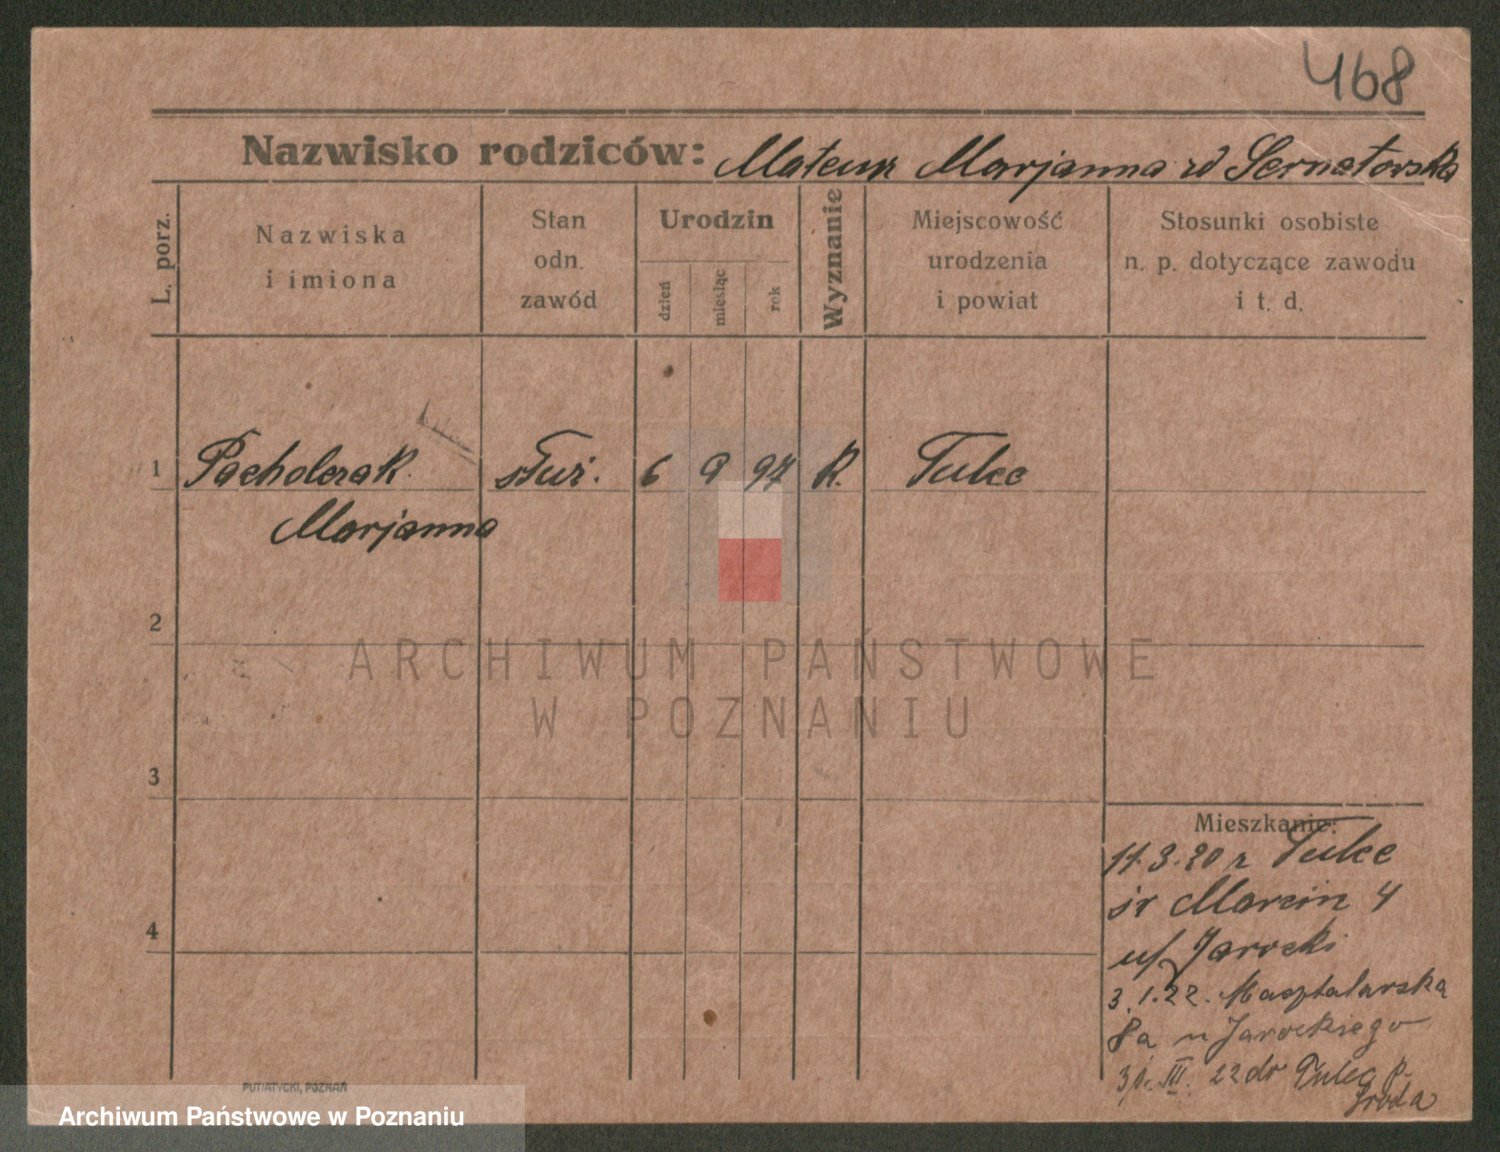 468
Nazwisko rodziców: Mateusz Marjanna zd Sernatowska
L. porz.
Nazwiska
i imiona
Stan
odn.
zawód
Urodzin
dzień
miesiąc
rok
Wyznanie
Miejscowość
urodzenia
i powiat
Stosunki osobiste
n. p. dotyczące zawodu
i t. d.
1 Pacholczak służ. 6 9 97 R. Tulce
Marjanna
2
ARCHIWUM PAŃSTWOWE
W POZNANIU
3
4
Mieszkanie:
3.20 z Tulce
św Marcin 4
u/ Jarocki
3.1.22. Masztalarska
8a u Jarockiego
III. 22 do Tulec p.
Środa
PUTIATYCKI, POZNAŃ
Archiwum Państwowe w Poznaniu